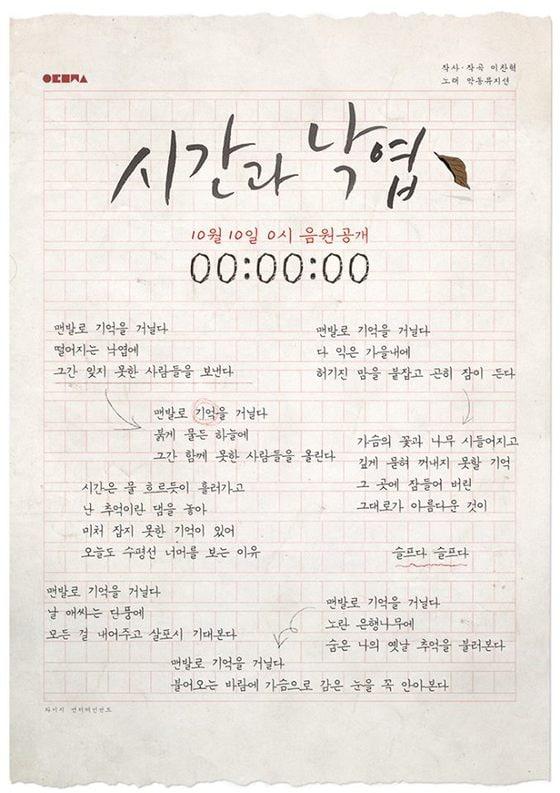 작사·작곡 이찬혁
노래 악동뮤지션
시간과 낙엽
10월 10일 0시 음원공개
00:00:00
맨발로 기억을 거닐다
떨어지는 낙엽에
그간 잊지 못한 사람들을 보낸다
맨발로 기억을 거닐다
붉게 물든 하늘에
그간 함께 못한 사람들을 올린다
시간은 물 흐르듯이 흘러가고
난 추억이란 댐을 놓아
미처 잡지 못한 기억이 있어
오늘도 수평선 너머를 보는 이유
맨발로 기억을 거닐다
다 익은 가을내에
허기진 맘을 붙잡고 곤히 잠이 든다
가슴의 꽃과 나무 시들어지고
깊게 묻혀 꺼내지 못할 기억
그 곳에 잠들어 버린
그대로가 아름다운 것이
슬프다 슬프다
맨발로 기억을 거닐다
날 애싸는 단풍에
모든 걸 내어주고 살포시 기대본다
맨발로 기억을 거닐다
노란 은행나무에
숨은 나의 옛날 추억을 불러본다
맨발로 기억을 거닐다
불어오는 바람에 가슴으로 감은 눈을 꼭 안아본다
와이지 엔터테인먼트